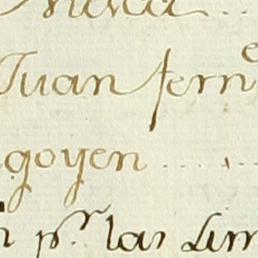 Juan fern^e
goyen ....
n p.^r las Lim